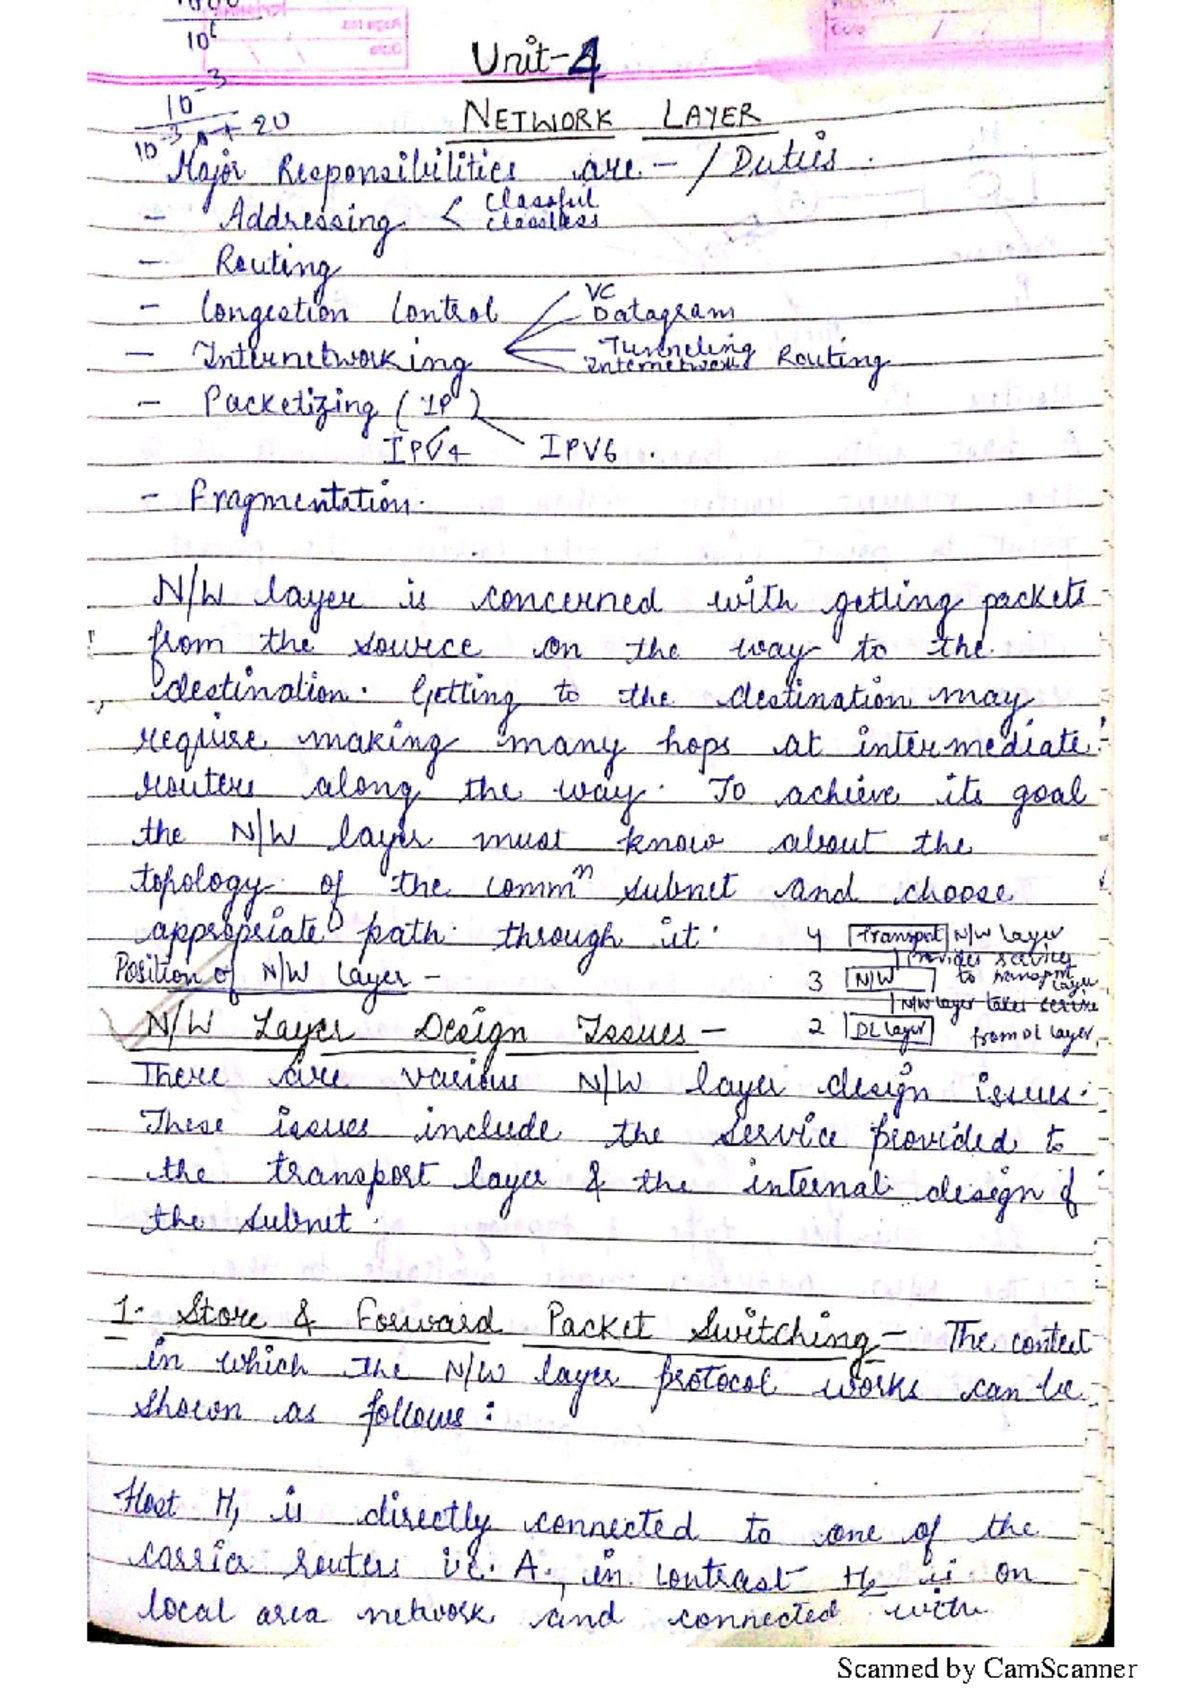 10
Unit-4
10^-3
10^-3 + 20
NETWORK LAYER
Major Responsibilities are - / Duties.
- Addressing < Classful
Classless
- Routing
- Congestion Control
VC
Datagram
- Internetworking
Tunneling
Internetwork Routing
- Packetizing (IP)
IPV4 IPV6.
- Fragmentation.
N/W layer is concerned with getting packets
from the source on the way to the
destination. Getting to the destination may
require making many hops at intermediate
routers along the way. To achieve its goal
the N/W layer must know about the
topology of the commⁿ subnet and choose
appropriate path through it.
4 Transport N/W layer
provides services
to transport
layer
Position of N/W layer -
3 N/W
N/W layer takes service
from DL layer.
2 DL layer
N/W Layer Design Issues -
There are various N/W layer design issues.
These issues include the service provided to
the transport layer & the internal design of
the subnet.
1. Store & Forward Packet Switching - The context
in which the N/W layer protocol works can be
shown as follows:
Host H1 is directly connected to one of the
carrier routers i.e. A., in contrast H2 is on
local area network and connected with
Scanned by CamScanner